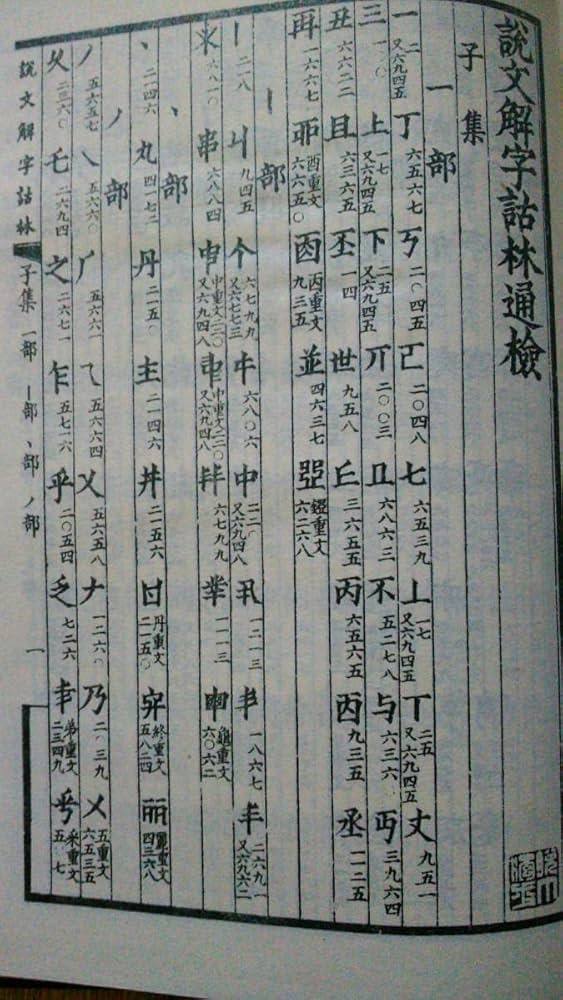 說文解字詁林通檢
子集
一部
一 二 又六九四五 丁 六五六七 丂 二〇四五 匸 二〇四八 七 六五三九 丄 一七 又六九四五 丅 二五 又六九四五 丈 九五一
三 上 一七 又六九四五 下 二五 又六九四五 丌 二〇〇三 六八六三 不 五二七八 与 丏 三九六四
丑 六六二二 且 六三六五 丕 一四 世 九五八 丘 三六五五 丙 六五六五 㐁 九三五 丞 一一二五
一六六七 酉重文 六六五〇 㐁重文 九三五 並 四六三七 鐙重文 六二六八
丨部
丨 二一八 丩 九四五 个 六七九九 又六七七三 六八〇六 中 二二〇 又六九四八 丮 一二一三 一八六七 丰 二六九一 又六九六二
六八一〇 串 六八八四 中重文二二〇 又六九四八 中重文二二〇 又六九四八 六七九九 丵 一一一三 龜重文 六〇六二
丶部
丶 二一四六 丸 四一七二 丹 二一五〇 主 二一四六 丼 二一五六 丹重文 二一五〇 終重文 五八二四 丽 麗重文 四三六八
丿部
丿 五六五七 乀 五六六〇 𠂆 五六六二 乁 五六六四 乂 五六五八 𠂇 一二六〇 乃 二〇三九 㐅 五重文 六五三五
乆 二三六〇 乇 二六九四 之 二六七一 乍 五七一六 乎 二〇五四 乏 七二六 弟重文 二三四九 采重文 五〇七
說文解字詁林 子集 一部 丨部 丶部 丿部 一